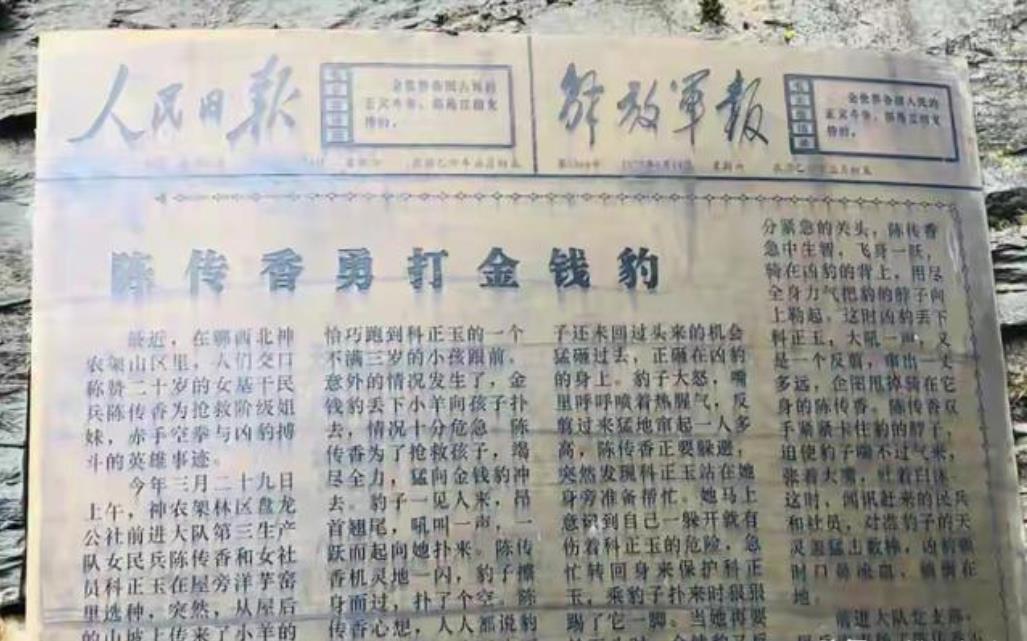 人民日报
全世界各国人民的
正义斗争，都是互相支
持的。
解放军报
全世界各国人民的
正义斗争，都是互相支
持的。
陈传香勇打金钱豹
最近，在鄂西北神
农架山区里，人们交口
称赞二十岁的女基干民
兵陈传香为抢救阶级姐
妹，赤手空拳与凶豹搏
斗的英雄事迹。
今年三月二十九日
上午，神农架林区盘龙
公社前进大队第三生产
队女民兵陈传香和女社
员科正玉在屋旁洋芋窖
里选种，突然，从屋后
的山坡上传来了小羊的
恰巧跑到科正玉的一个
不满三岁的小孩跟前。
意外的情况发生了，金
钱豹丢下小羊向孩子扑
去，情况十分危急。陈
传香为了抢救孩子，竭
尽全力，猛向金钱豹冲
去。豹子一见人来，昂
首翘尾，吼叫一声，一
跃而起向她扑来。陈传
香机灵地一闪，豹子擦
身而过，扑了个空。陈
传香心想，人人都说豹
子还未回过头来的机会
猛砸过去，正砸在凶豹
的身上。豹子大怒，嘴
里呼呼喷着热腥气，反
剪过来猛地窜起一人多
高，陈传香正要躲避，
突然发现科正玉站在她
身旁准备帮忙。她马上
意识到自己一躲开就有
伤着科正玉的危险，急
忙转回身来保护科正
玉，乘豹子扑来时狠狠
踢了它一脚。当她再要
分紧急的关头，陈传香
急中生智，飞身一跃，
骑在凶豹的背上，用尽
全身力气把豹的脖子向
上勒起，这时凶豹丢下
科正玉，大吼一声，又
是一个反剪，窜出一丈
多远，企图甩掉骑在它
身的陈传香。陈传香双
手紧紧卡住豹的脖子，
迫使豹子喘不过气来，
张着大嘴，吐着白沫。
这时，闻讯赶来的民兵
和社员，对准豹子的天
灵盖猛击数棒，凶豹顿
时口鼻流血，瘫倒在
地。
前进大队党支部